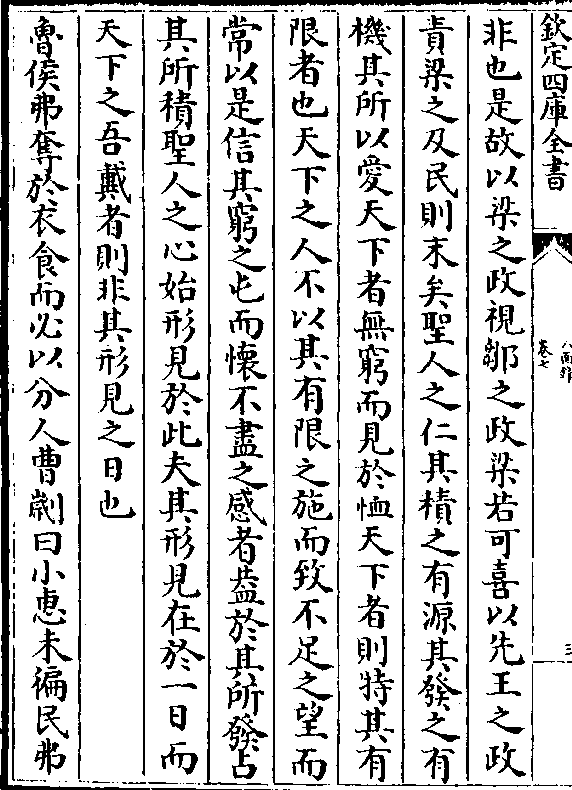 欽定四庫全書
八面鋒
卷七
三
非也是故以梁之政視鄒之政梁若可喜以先王之政
責梁之及民則末矣聖人之仁其積之有源其發之有
機其所以愛天下者無窮而見於恤天下者則特其有
限者也天下之人不以其有限之施而致不足之望而
常以是信其窮之也而懷不盡之感者葢於其所發占
其所積聖人之心始形見於此夫其形見在於一日而
天下之吾戴者則非其形見之日也
魯侯弗奪於衣食而必以分人曹劌曰小惠未徧民弗